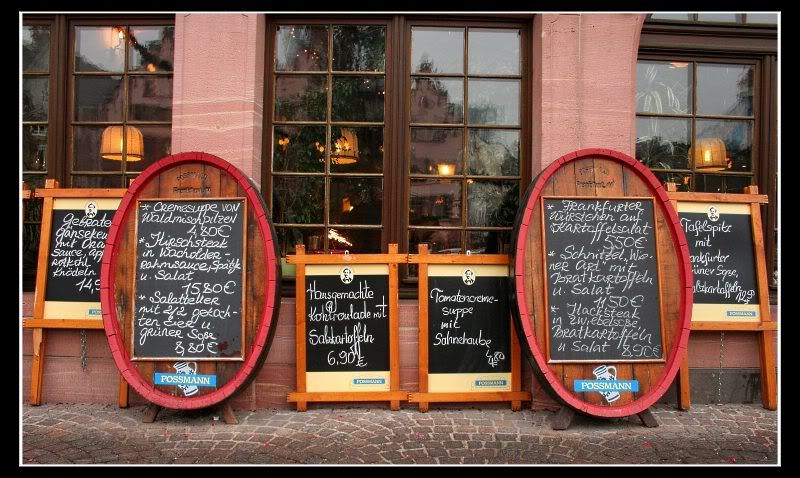 Gebratene
Gänsekeu
mit Oran
Sauce, ap
rotkohl
Knödeln
14,9
POSSMANN
Frankfurt/M.
* Cremesuppe von
Waldmischpilzen
4,80€
* Hirschsteak
in Wacholder-
rahmsauce, Spätzle
u. Salat
15,80€
* Salatteller
mit 2/2 gekoch-
ten Eier u.
grüner Soße
8,80€
POSSMANN
Hausgemachte
Kohlroulade mit
Salzkartoffeln
6,90€
POSSMANN
Tomatencreme-
suppe
mit
Sahnehaube
4,80
POSSMANN
* Frankfurter
Würstchen auf
Kartoffelsalat
5,50€
* Schnitzel "Wie-
ner Art" mit
Bratkartoffeln
u. Salat
11,50€
* Hacksteak
in Zwiebelsoße
Bratkartoffeln
u. Salat 8,90€
POSSMANN
Tafelspitz
mit
Frankfurter
Grüner Soße,
Salzkartoffeln
12,90
POSSMANN